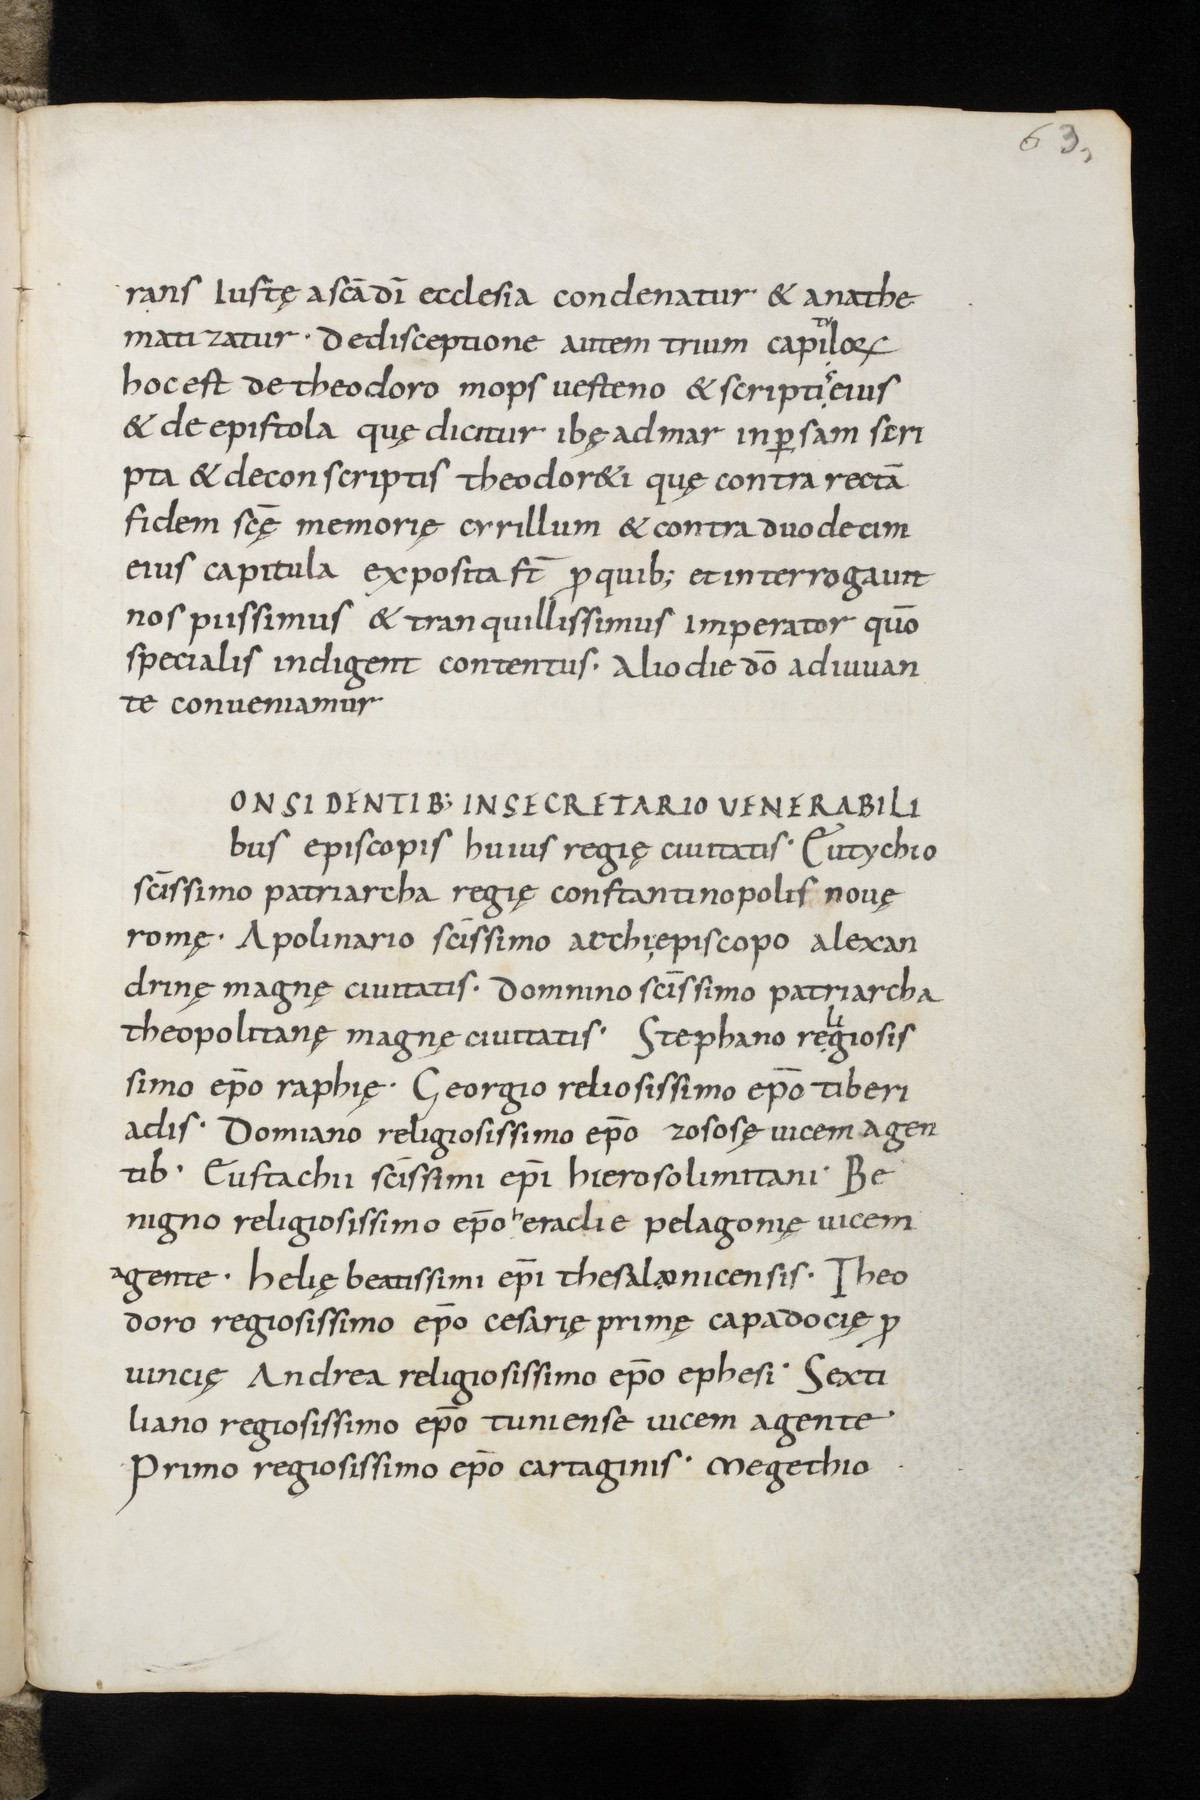 63,
rans Iustę a scā dī ecclesia condenatur & anathe
matizatur · De disceptione autem trium capitulorꝝ
hoc est de theodoro mopsuesteno & scriptis eius
& de epistola quę dicitur ibę ad mar in ꝑsam scri
pta & de conscriptis theodor&i quę contra rectā
fidem scę̄ memorię cyrillum & contra duodecim
eius capitula exposita st̄ ꝓ quib; et interrogaunt
nos piissimus & tranquillissimus Imperator quō
specialis indigent contentus · Alio die dō adiuuan
te conueniamur
ONSIDENTIB; IN SECRETARIO VENERABILI
bus episcopis huius regię ciuitatis · Eutychio
scīssimo patriarcha regię constantinopolis nouę
romę · Apolinario scīssimo archiępiscopo alexan
drinę magnę ciuitatis · Domnino scīssimo patriarcha
theopolitanę magnę ciuitatis · Stephano religiosis
simo ep̄o raphię · Georgio reliosissimo ep̄o tiberi
adis · Domiano religiosissimo ep̄o zososę uicem agen
tib · Eustachii scīssimi ep̄i hierosolimitani · Be
nigno religiosissimo ep̄o heraclie pelagonię uicem
agente · helię beatissimi ep̄i thesalonicensis · Theo
doro regiosissimo ep̄o cesarię primę capadocię ꝓ
uincię Andrea religiosissimo ep̄o ephesi · Sexti
liano regiosissimo ep̄o tuniense uicem agente ·
Primo regiosissimo ep̄o cartaginis · Megethio